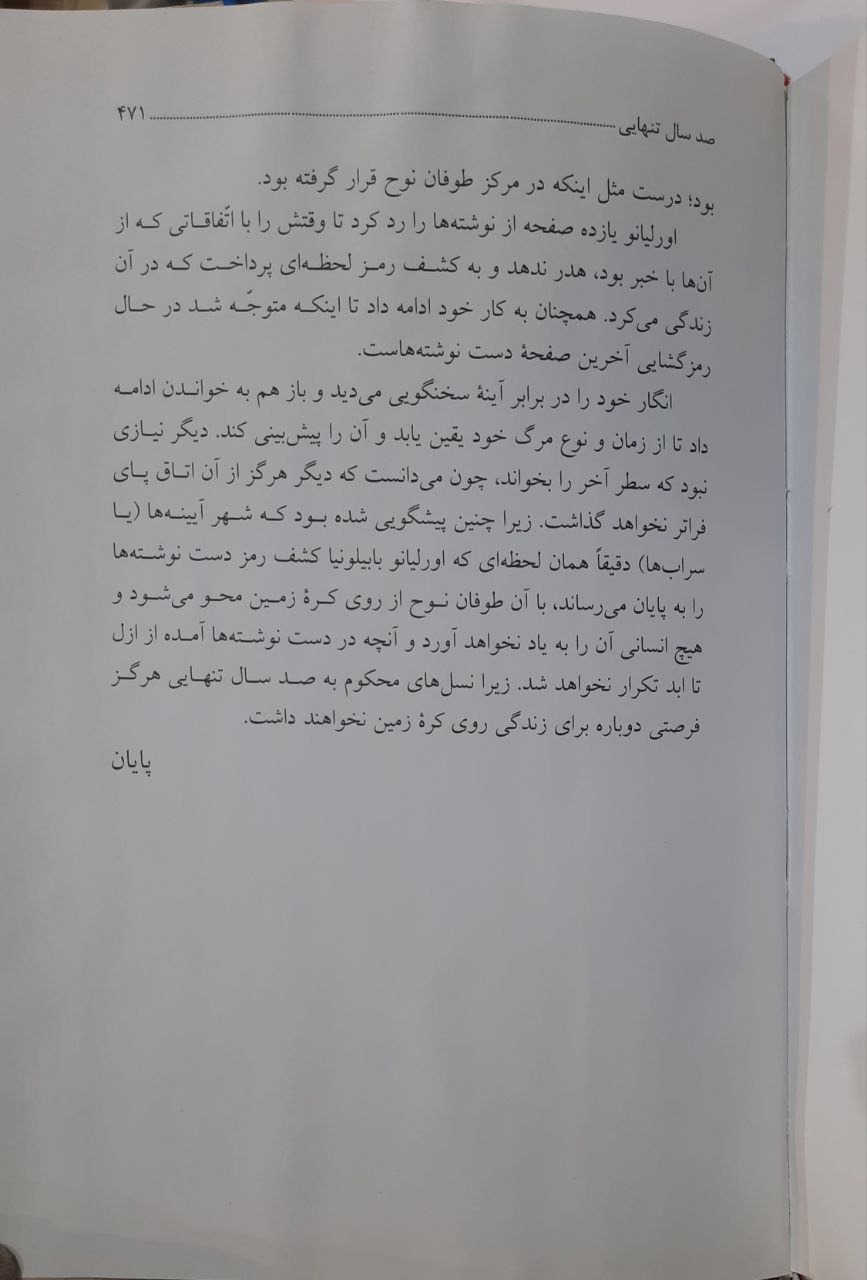 صد سال تنهایی ........................................................................ ۴۷۱
بود؛ درست مثل اینکه در مرکز طوفان نوح قرار گرفته بود.
اورلیانو یازده صفحه از نوشته‌ها را رد کرد تا وقتش را با اتّفاقاتی که از
آن‌ها با خبر بود، هدر ندهد و به کشف رمز لحظه‌ای پرداخت که در آن
زندگی می‌کرد. همچنان به کار خود ادامه داد تا اینکه متوجّه شد در حال
رمزگشایی آخرین صفحهٔ دست نوشته‌هاست.
انگار خود را در برابر آینهٔ سخنگویی می‌دید و باز هم به خواندن ادامه
داد تا از زمان و نوع مرگ خود یقین یابد و آن را پیش‌بینی کند. دیگر نیازی
نبود که سطر آخر را بخواند، چون می‌دانست که دیگر هرگز از آن اتاق پای
فراتر نخواهد گذاشت. زیرا چنین پیشگویی شده بود که شهر آیینه‌ها (یا
سراب‌ها) دقیقاً همان لحظه‌ای که اورلیانو بابیلونیا کشف رمز دست نوشته‌ها
را به پایان می‌رساند، با آن طوفان نوح از روی کرهٔ زمین محو می‌شود و
هیچ انسانی آن را به یاد نخواهد آورد و آنچه در دست نوشته‌ها آمده از ازل
تا ابد تکرار نخواهد شد. زیرا نسل‌های محکوم به صد سال تنهایی هرگز
فرصتی دوباره برای زندگی روی کرهٔ زمین نخواهند داشت.
پایان